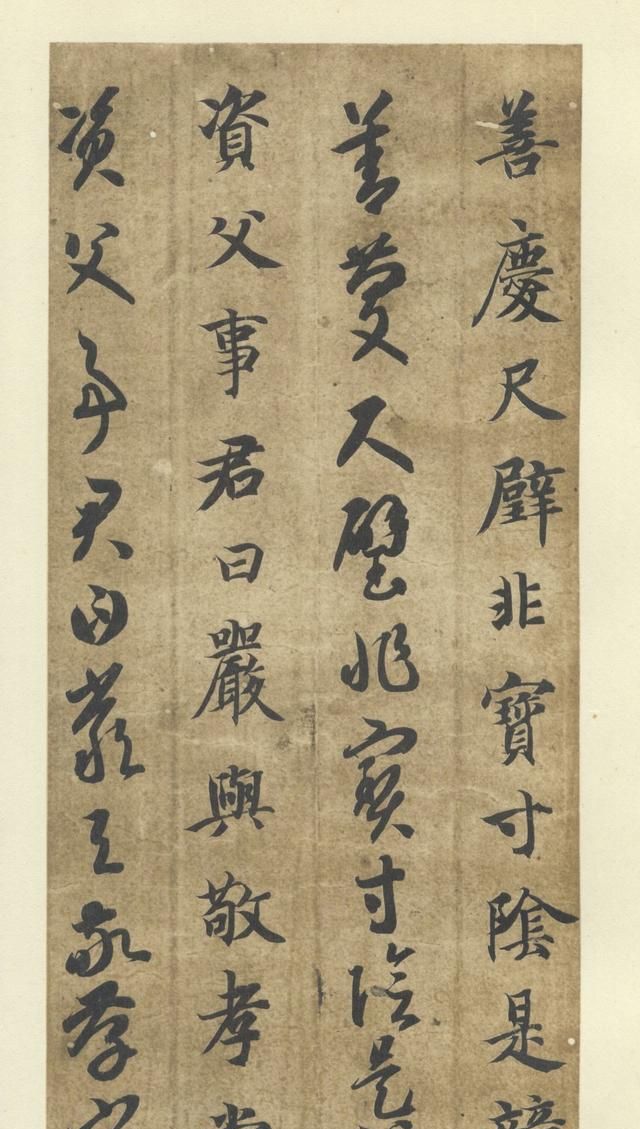 善慶尺璧非寶寸陰是競
善慶尺璧非寶寸陰是
資父事君曰嚴與敬孝當
資父事君曰嚴與敬孝